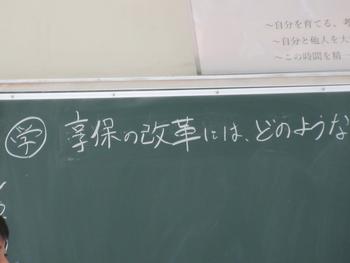 ～自分を育てる、考
～自分と他人を大
～この時間を精一
学 享保の改革には、どのような